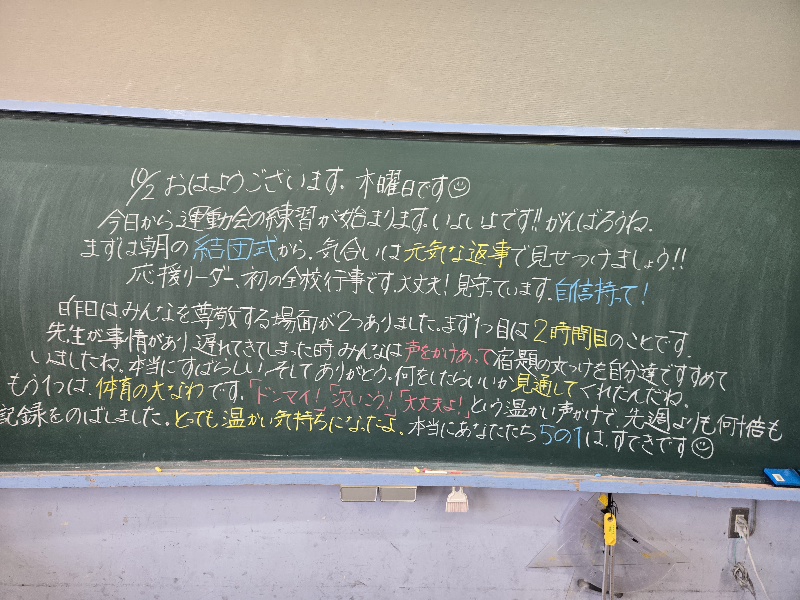 10/2 おはようございます。木曜日です☺
今日から運動会の練習が始まります。いよいよです!!がんばろうね。
まずは朝の結団式から。気合いは元気な返事で見せつけましょう!!
応援リーダー、初の全校行事です。大丈夫!見守っています。自信持って!
昨日はみんなを尊敬する場面が2つありました。まず1つ目は2時間目のことです。
先生が事情があり、遅れてきてしまった時、みんなは声をかけあって宿題の丸つけを自分達ですすめて
いましたね。本当にすばらしい。そしてありがとう。何をしたらいいか見通してくれたんだね。
もう1つは、体育の大なわです。「ドンマイ!」「次いこう!」「大丈夫よ!」という温かい声かけで、先週よりも何十倍も
記録をのばしました。とっても温かい気持ちになったよ。本当にあなたたち5の1は、すてきです☺